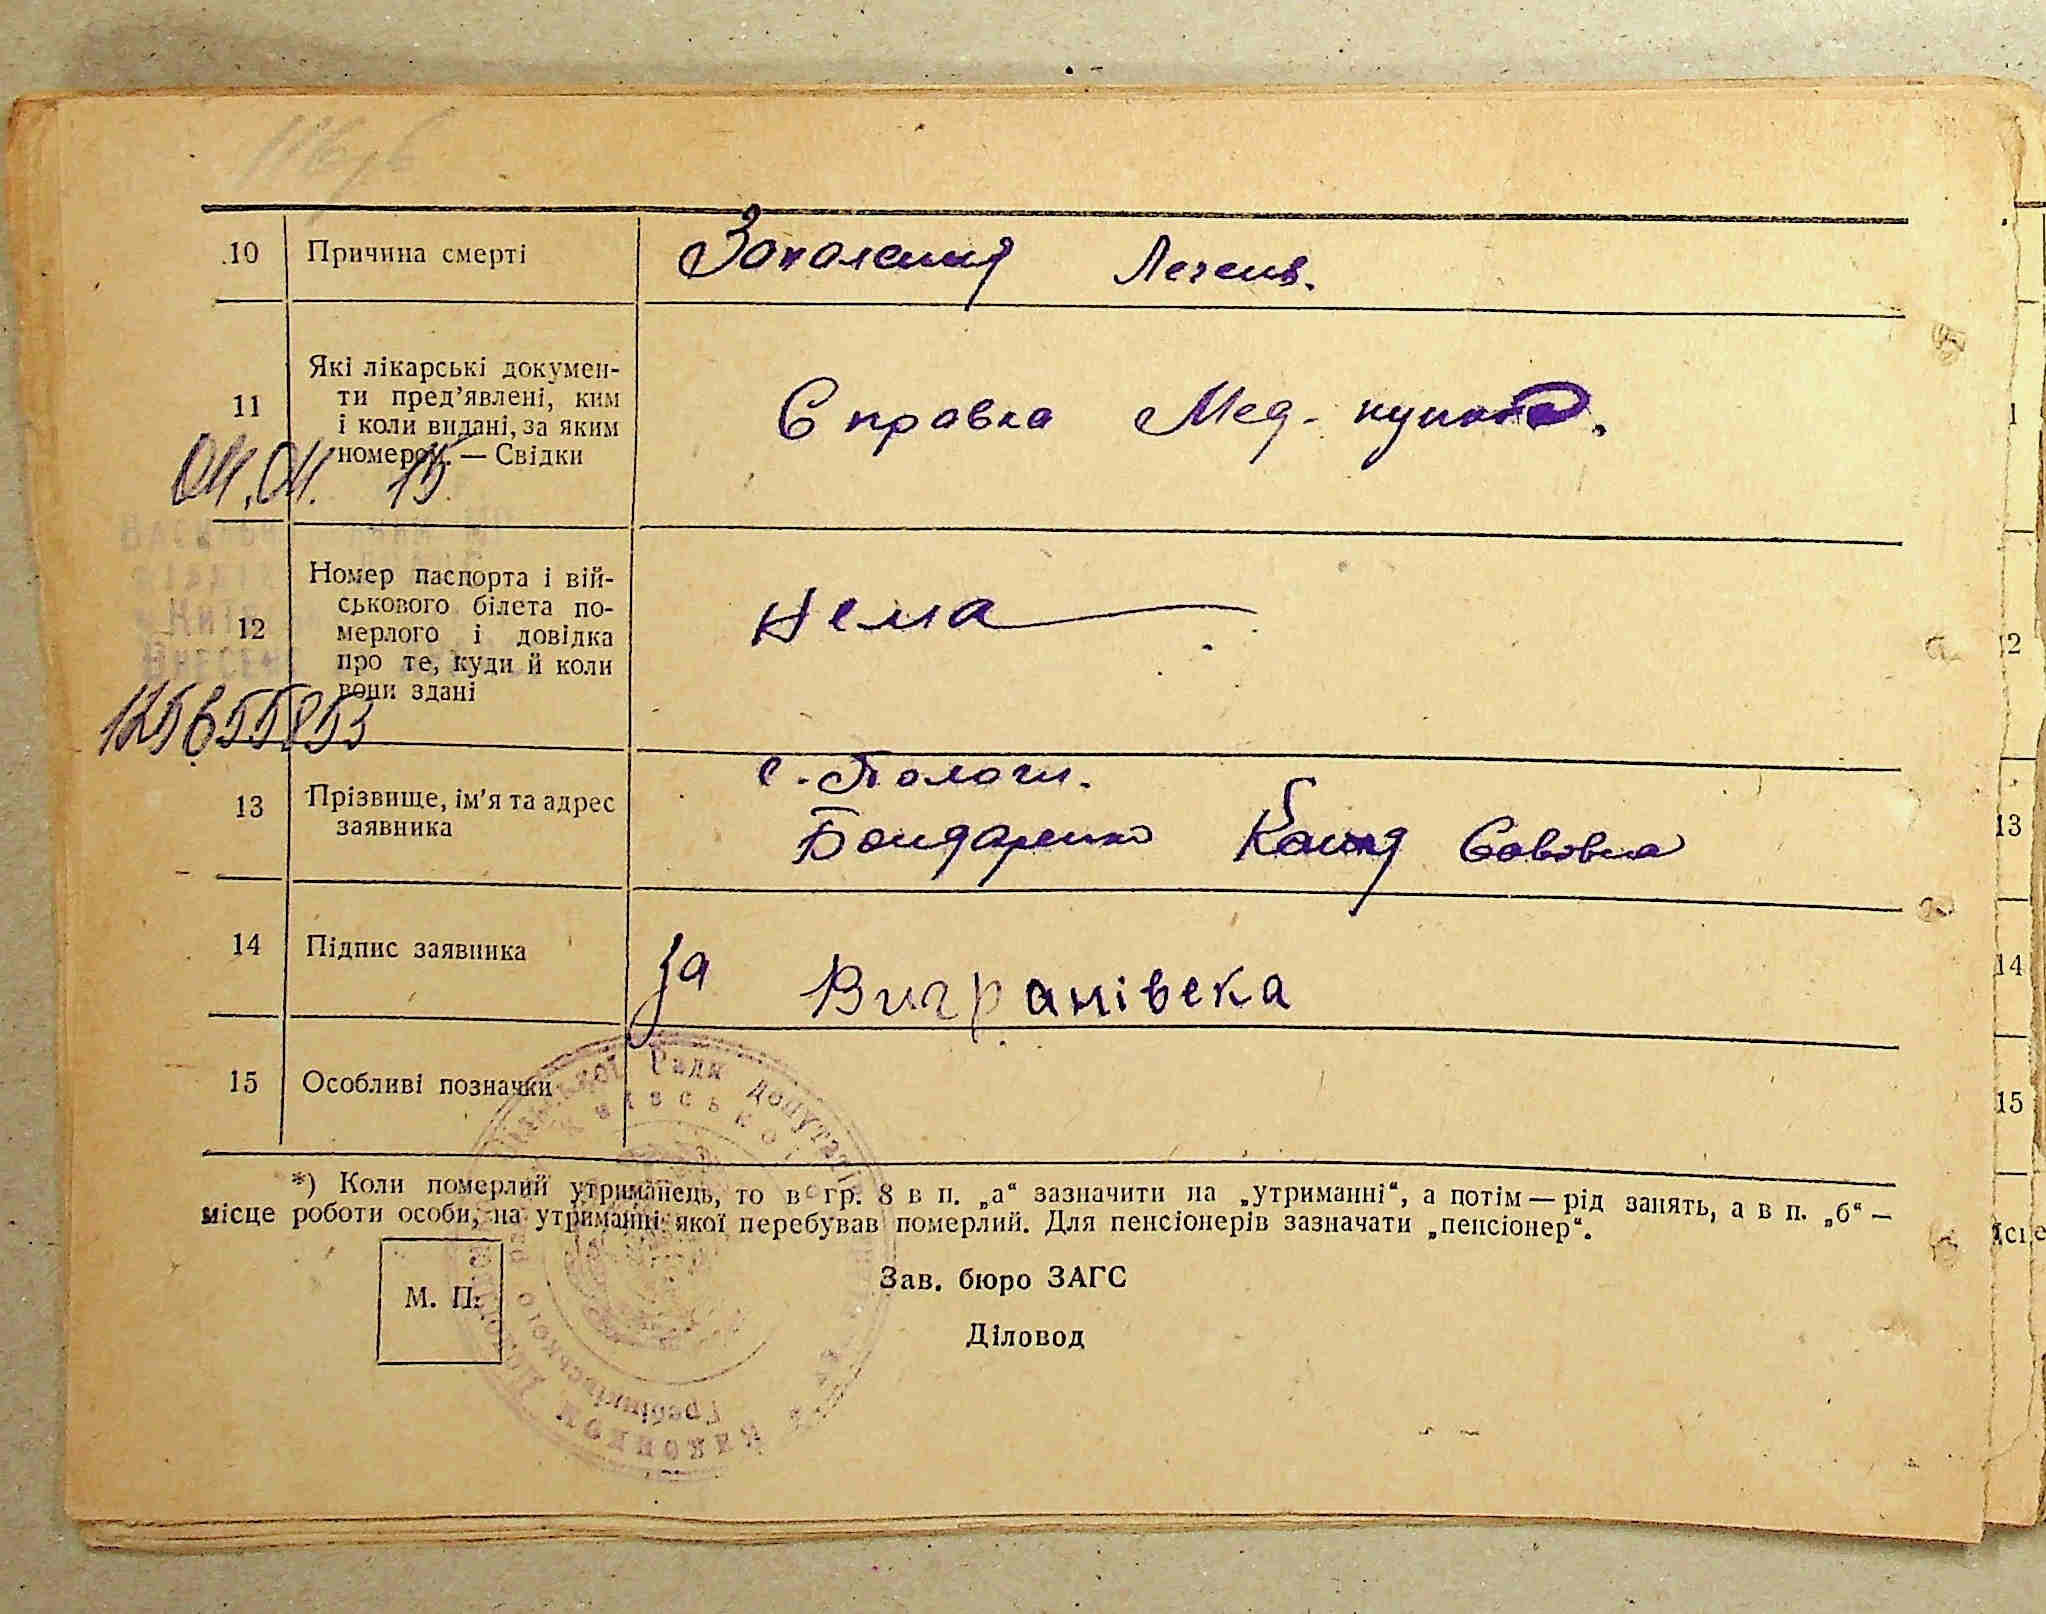 10 Причина смерті Запалення Легенів.
11 Які лікарські докумен-
ти пред'явлені, ким
і коли видані, за яким
номером. — Свідки
Справка Мед- пункта.
04.04. 15
12 Номер паспорта і вій-
ськового білета по-
мерлого і довідка
про те, куди й коли
вони здані
Нема
125655853
с. Пологи.
13 Прізвище, ім'я та адрес
заявника
Бондаренко Савовна
14 Підпис заявника за Вигранівска
15 Особливі позначки
*) Коли померлий утриманець, то в гр. 8 в п. „а“ зазначити на „утриманні“, а потім — рід занять, а в п. „б“ —
місце роботи особи, на утриманні якої перебував померлий. Для пенсіонерів зазначати „пенсіонер“.
М. П.
Зав. бюро ЗАГС
Діловод
Ради депутатів
Виконком
1
2
13
14
15